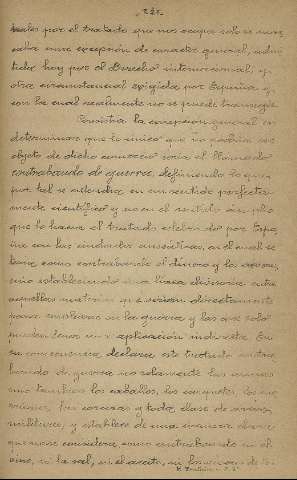 trales por el tratado que nos ocupa solo se mar-
caba una excepción de caracter general, admi-
tida hoy por el Derecho internacional, y
otra circunstancial exigida por España y
con la cual realmente no se puede transigir.
Consistia la excepcion general en
determinar que lo unico que no podria ser
objeto de dicho comercio seria el llamado
contrabando de guerra, definiendo lo que
por tal se entendia en un sentido perfecta-
mente cientifico y no en el sentido amplio
que lo hacia el tratado celebrado por Espa-
ña con las ciudades anseáticas, en el cual se
tenia como contrabando el dinero y los
sino estableciendo una linea divisoria entre
aquellas materias que sirven directamente
para emplearse en la guerra y las que solo
pueden tener una aplicacion indirecta. En
su consecuencia, declara este tratado contra-
bando de guerra no solamente las armas
sino tambien los caballos, los
las corazas y toda clase de armas
militares, y establece de una manera clara
que no se considera como contrabando ni el
ni la sal, ni el aceite, ni los